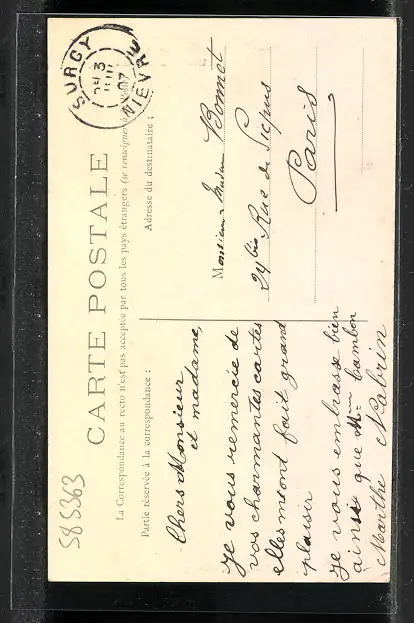 CARTE POSTALE
La Correspondance au recto n'est pas acceptée par tous les pays étrangers (se renseigner à
Partie réservée à la correspondance :
Chers Monsieur
et madame,
je vous remercie de
vos charmantes cartes
elles mont fait grand
plaisir
je vous embrasse bien
ainsi que Mme Cambon
Marthe Nabrin
Adresse du destinataire :
Monsieur Madame Bonnet
24 bis Rue de Picpus
Paris
SURGY
NIÈVRE
585363